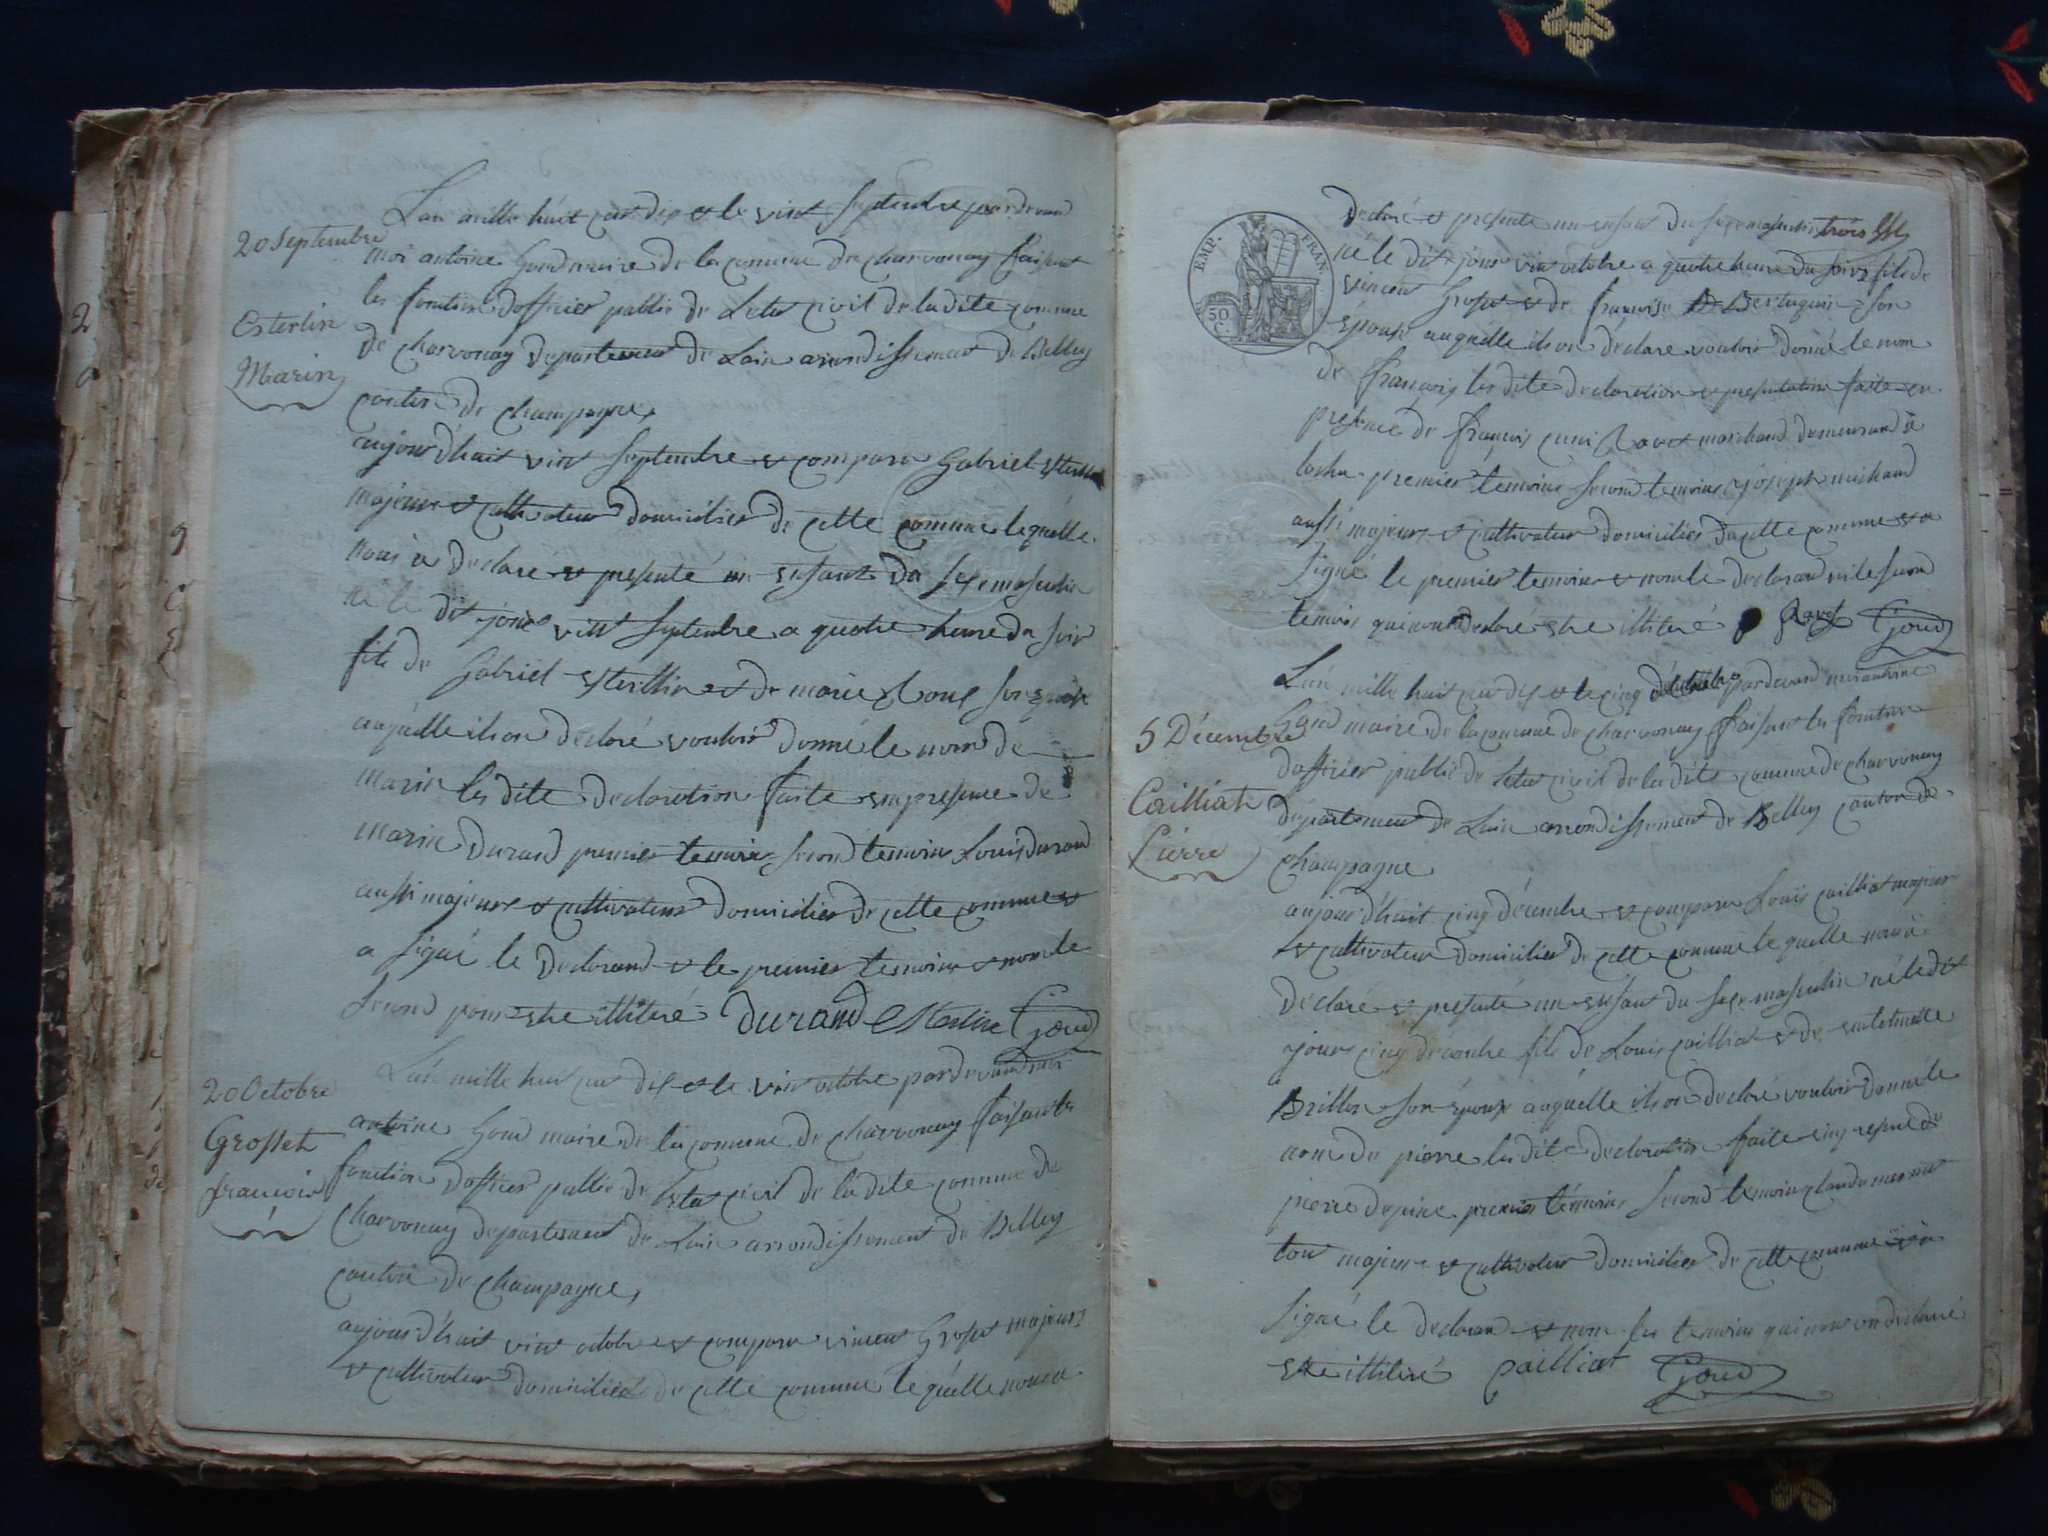 20 Septembre
Esterlin
Marin
L'an mille huit cent dix et le vint septembre pardevand
moi antoine Goud maire de la comune de charvonay faisant
les fontion d'officier public de letat civil de la dite comune
de charvonay departement de Lain arondissement de Belley
canton de champagne
aujourd'huit vint septembre et comparu Gabriel Esterlin
majeur et cultivateur domicilier de cette comune lequelle
nous a declaré et presenté un enfant du sexe masculin
né le dit jour vint septembre a quatre heure du soir
fils de Gabriel Esterllin et de marie son epouse
auquelle il son declaré vouloir donné le nom de
marin les dite declaration faite en presence de
marin durand premier temoin second temoin Louis durand
aussi majeure et cultivateur domicilier de cette comune et
a signé le declarand et le premier temoin et non le
second pour etre illiteré Durand Esterlin Goud
20 Octobre
Grosset
francois
L'an mille huit cent dix et le vint octobre pardevand moi
antoine Goud maire de la comune de charvonay faisant les
fonction d'officier public de letat civil de la dite comune de
charvonay departement de Lain arrondissement de Belley
canton de champagne
aujourd'huit vint octobre et comparu vincent Grosset majeur
et cultivateur domicilier de cette comune lequelle nous a
EMP. FRAN.
50 C.
declaré et presenté un enfant du sexe masculin
né le dit jour vint octobre a quatre heure du soir fils de
vincent Grosset et de francoise son
épouse auquelle il son déclare vouloir donné le nom
de francois les dite declaration et presentation faite en
presence de françois Ravet marchand demeurand a
premier temoin second temoin joseph michaud
aussi majeur et cultivateur domicilier de cette comune et a
signé le premier temoin et non le declarand ni le second
temoin qui nous declaré etre illiteré Ravet Goud
5 Décembre
Cailliat
Pierre
L'an mille huit cent dix et le cinq décembre pardevand moi antoine
Goud maire de la comune de charvonay faisant les fontion
d'officier public de letat civil de la dite comune de charvonay
département de Lain arrondissement de Belley canton de
champagne
aujourd'huit cinq décembre et comparu Louis cailliat majeur
et cultivateur domicilier de cette comune lequelle nous a
declaré et presenté un enfant du sexe masculin né le dit
jour cinq décembre fils de Louis cailliat et de
Brillon son epouse auquelle il son declaré vouloir donné le
nom de pierre les dite declaration faite en presence de
pierre premier témoin second temoin claude
tous majeur et cultivateur domicilier de cette comune et a
signé le declarand et non les temoin qui nous on declaré
etre illiteré cailliat Goud